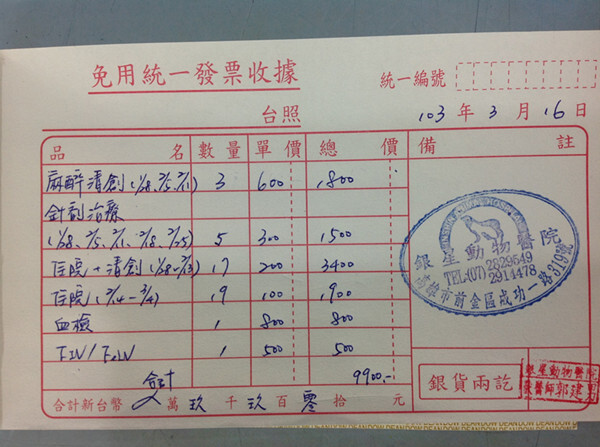 免用統一發票收據
統一編號
台照
103 年 3 月 16 日
品 名 數量 單 價 總 價 備 註
麻醉清創(1/28、2/5、2/11) 3 600 1800
針劑治療
(1/28、2/5、2/11、2/18、2/25) 5 300 1500
住院+清創(1/28-2/13) 17 200 3400
住院(2/14-3/4) 19 100 1900
血檢 1 800 800
FIV/FeLV 1 500 500
合計 9900.-
合計新台幣 萬 玖 千 玖 百 零 拾 元
銀星動物醫院
TEL:(07)2829549
2914478
高雄市前金區成功一路319號
銀貨兩訖
銀星動物醫院
獸醫師郭建